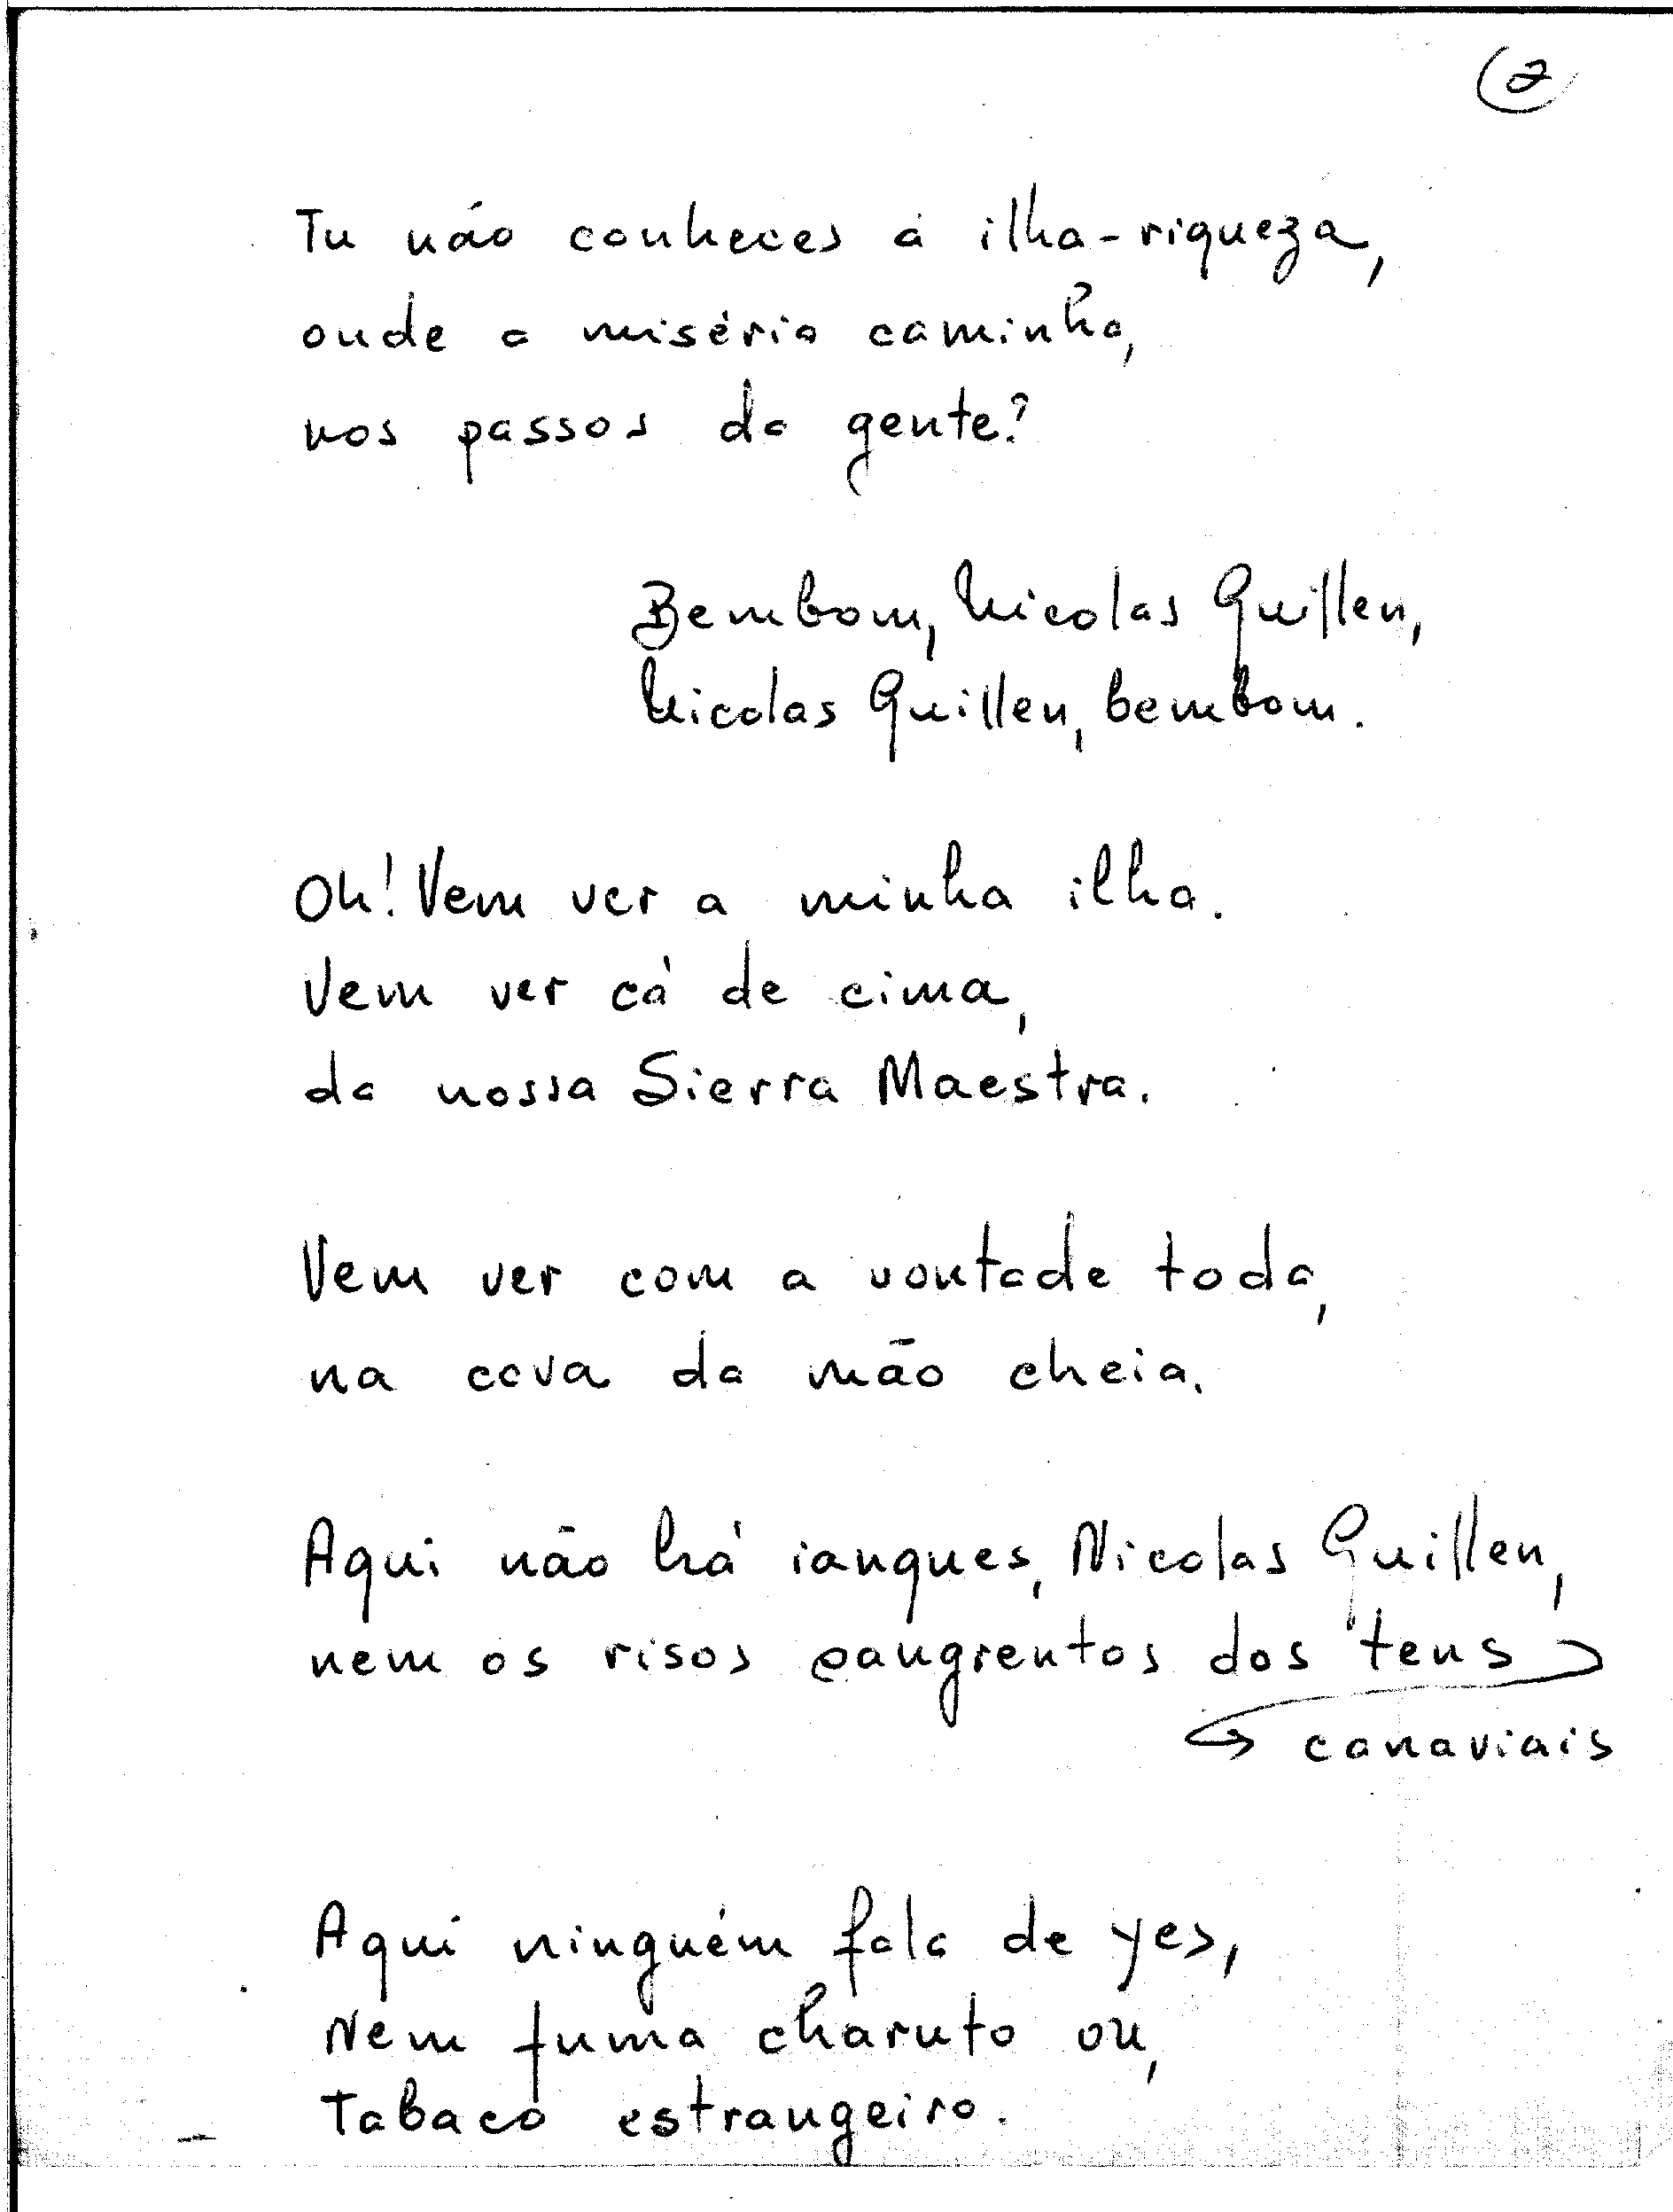 2
Tu não conheces a ilha-riqueza,
onde a miséria caminha,
nos passos da gente?
Bembom, Nicolas Guillen,
Nicolas Guillen, bembom.
Oh! Vem ver a minha ilha.
Vem ver cá de cima,
da nossa Sierra Maestra.
Vem ver com a vontade toda,
na cova da mão cheia.
Aqui não há ianques, Nicolas Guillen,
nem os risos sangrentos dos teus
canaviais
Aqui ninguém fala de yes,
Nem fuma charuto ou,
Tabaco estrangeiro.